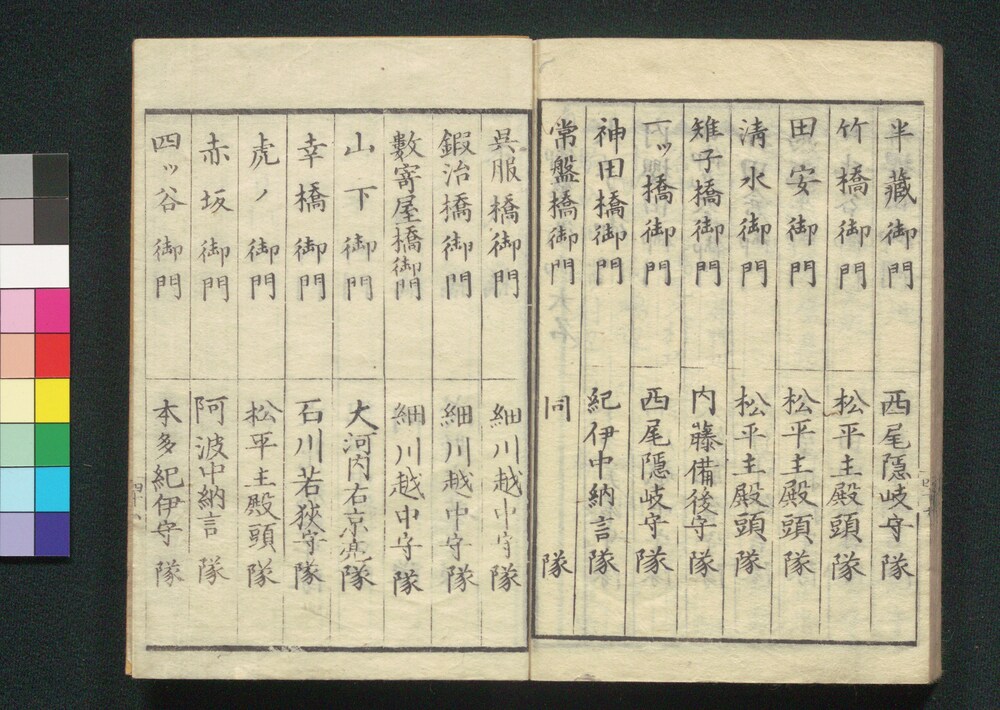 半藏御門 西尾隱岐守 隊
竹橋御門 松平主殿頭 隊
田安御門 松平主殿頭 隊
清水御門 松平主殿頭 隊
雉子橋御門 内藤備後守 隊
一ッ橋御門 西尾隱岐守 隊
神田橋御門 紀伊中納言 隊
常盤橋御門 同 隊
呉服橋御門 細川越中守 隊
鍜治橋御門 細川越中守 隊
數寄屋橋御門 細川越中守 隊
山下御門 大河内右京亮 隊
幸橋御門 石川若狹守 隊
虎ノ御門 松平主殿頭 隊
赤坂御門 阿波中納言 隊
四ッ谷御門 本多紀伊守 隊